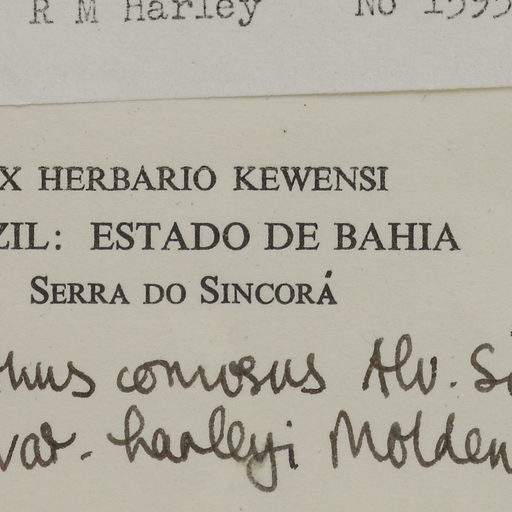 R M Harley No 1595
X HERBARIO KEWENSI
ZIL: ESTADO DE BAHIA
SERRA DO SINCORÁ
thus comosus Alv. Si
var. harleyi Molden